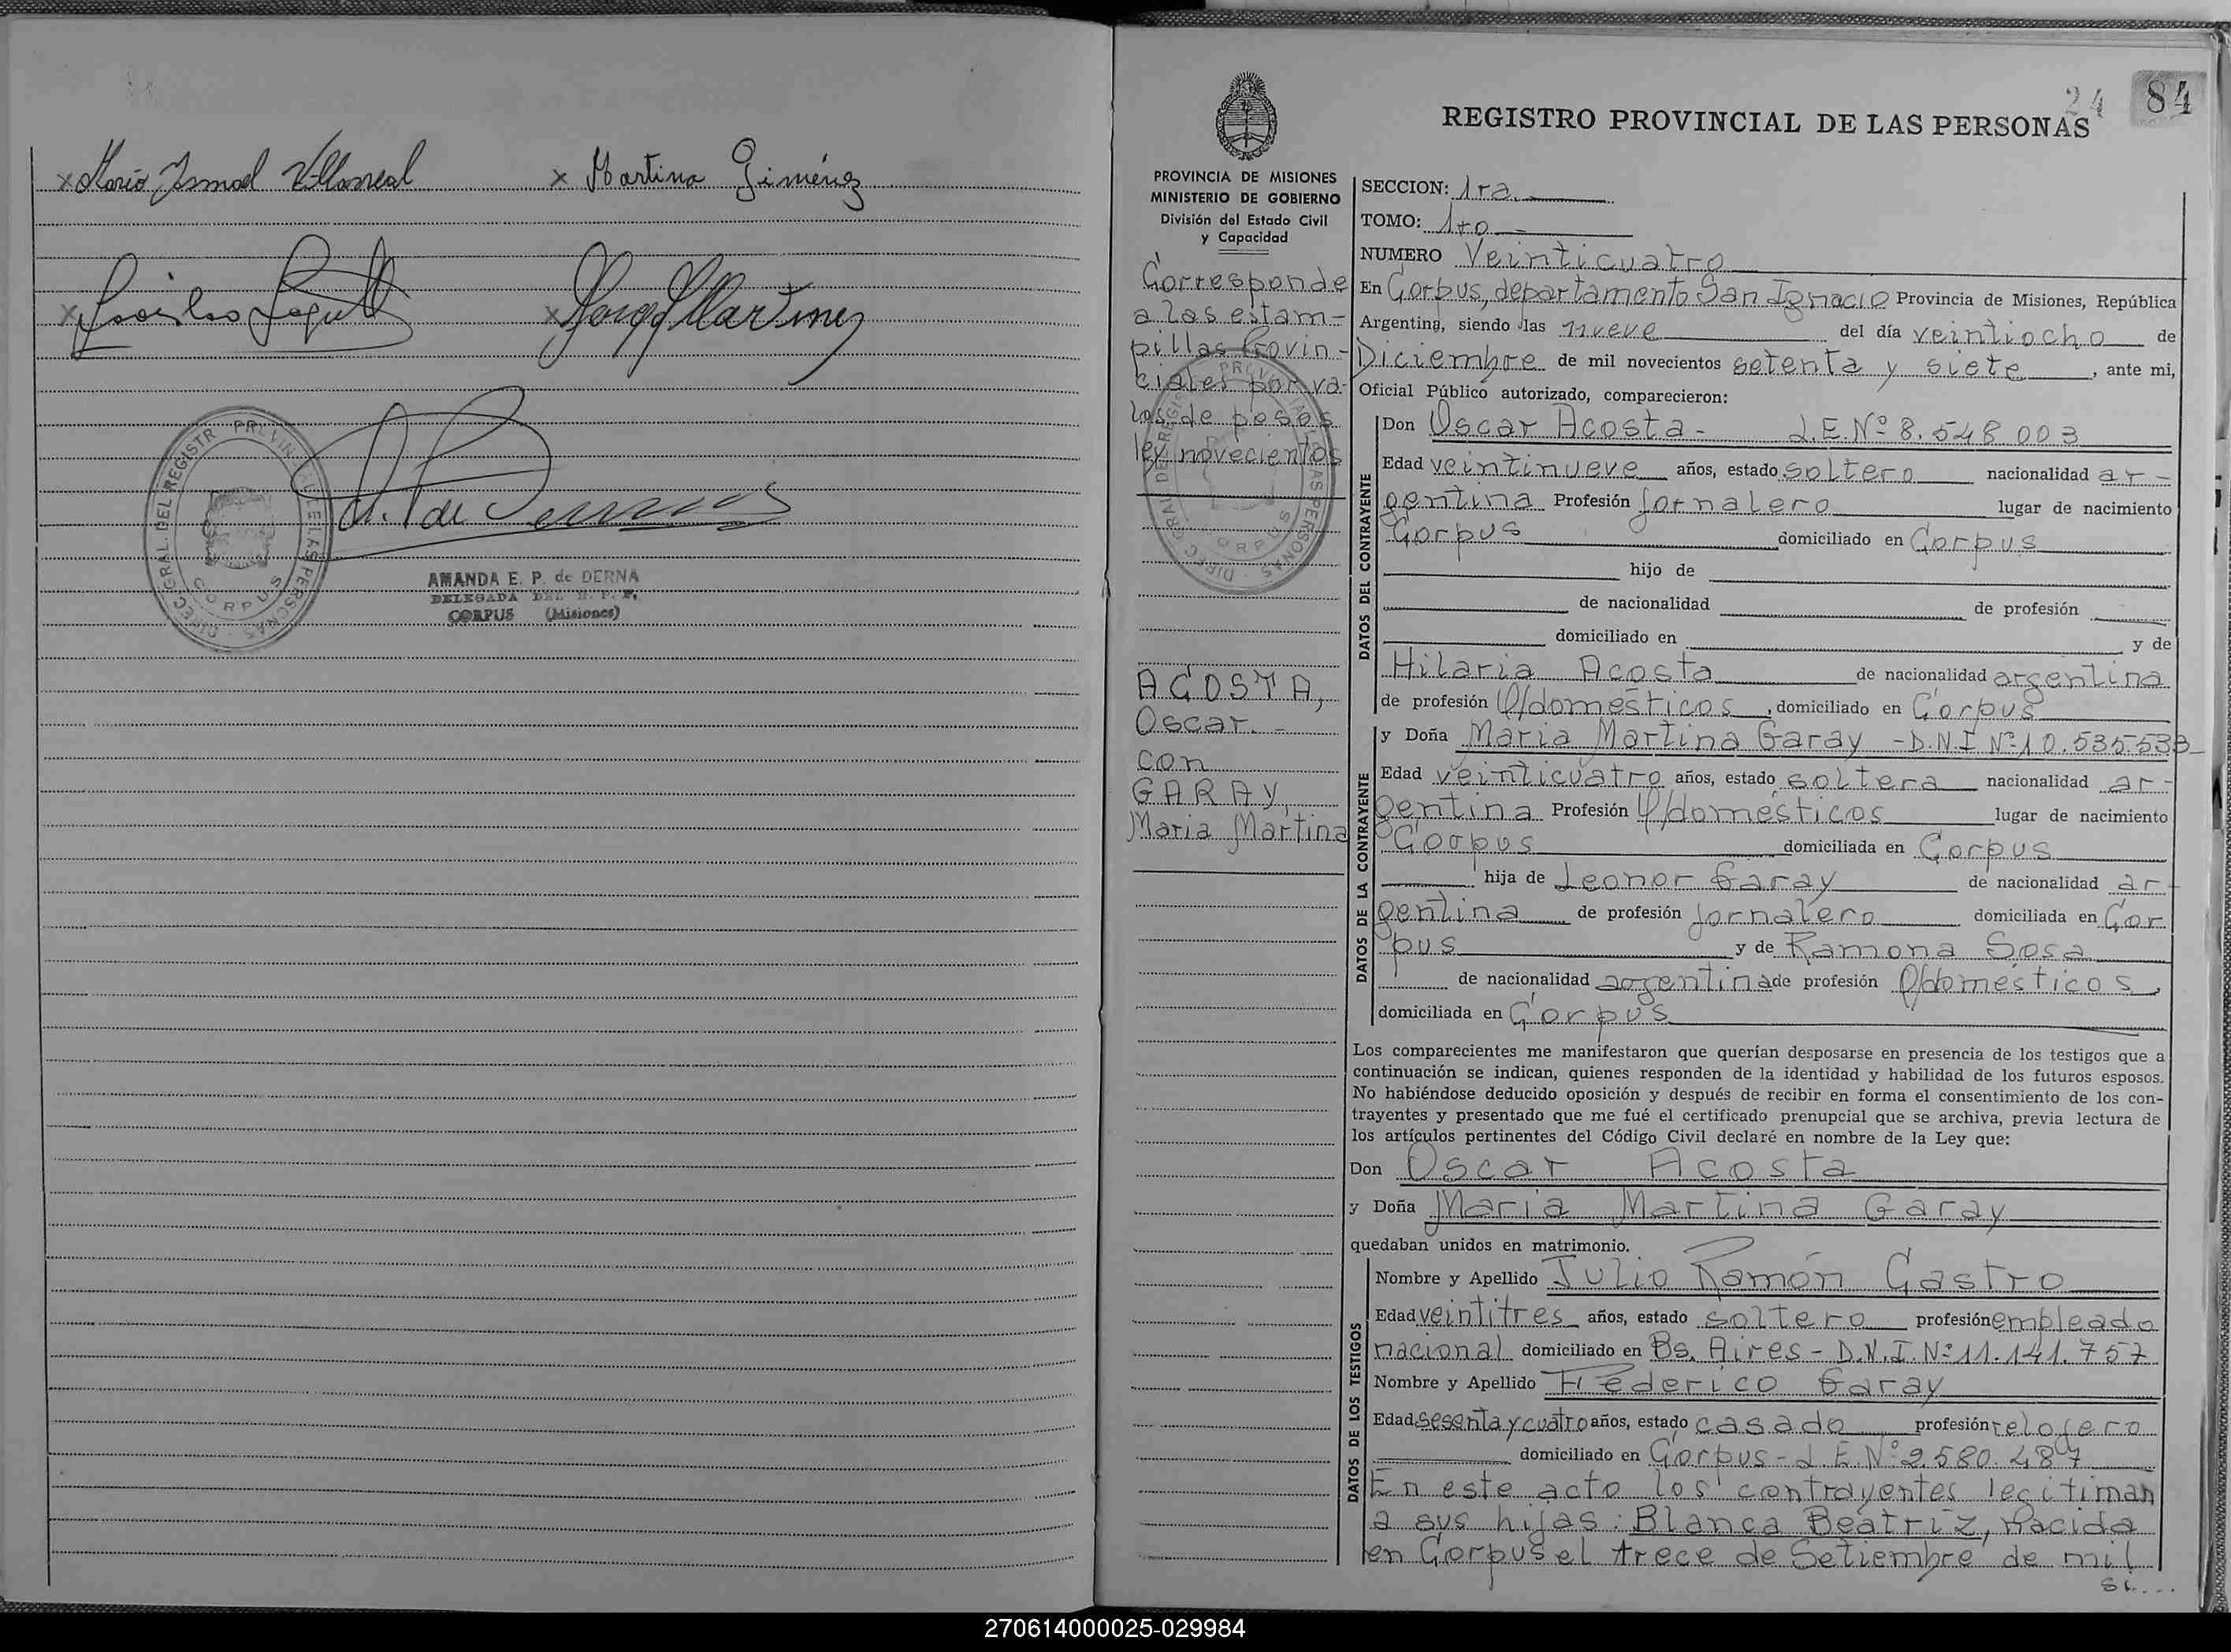 x Mario Ismael Villarreal x Martina Giménez
x x Jorge Martinez
DIREC. GRAL. DEL REGISTR PROVINCIAL DE LAS PERSONAS
CORPUS
AMANDA E. P. de DERNA
DELEGADA DEL R. P. P.
CORPUS (Misiones)
24 84
REGISTRO PROVINCIAL DE LAS PERSONAS
PROVINCIA DE MISIONES
MINISTERIO DE GOBIERNO
División del Estado Civil
y Capacidad
Corresponde
a las estam-
pillas Provin-
ciales por va-
los de pesos
ley novecientos
ACOSTA,
Oscar. -
con
GARAY,
Maria Martina
SECCION: 1ra.
TOMO: 1ro -
NUMERO Veinticuatro
En Corpus, departamento San Ignacio Provincia de Misiones, República
Argentina, siendo las nueve del día veintiocho de
Diciembre de mil novecientos setenta y siete, ante mi,
Oficial Público autorizado, comparecieron:
DATOS DEL CONTRAYENTE
Don Oscar Acosta - L.E. Nº 8.548.003
Edad veintinueve años, estado soltero nacionalidad ar-
gentina Profesión Jornalero lugar de nacimiento
Corpus domiciliado en Corpus
hijo de
de nacionalidad de profesión
domiciliado en y de
Hilaria Acosta de nacionalidad argentina
de profesión Q/domésticos, domiciliado en Corpus
DATOS DE LA CONTRAYENTE
y Doña Maria Martina Garay - D.N.I Nº 10.535.533
Edad veinticuatro años, estado soltera nacionalidad ar-
gentina Profesión Q/domésticos lugar de nacimiento
Corpus domiciliada en Corpus
hija de Leonor Garay de nacionalidad ar-
gentina de profesión Jornalero domiciliada en Cor
pus y de Ramona Sosa
de nacionalidad argentina de profesión Q/domésticos,
domiciliada en Corpus
Los comparecientes me manifestaron que querían desposarse en presencia de los testigos que a
continuación se indican, quienes responden de la identidad y habilidad de los futuros esposos.
No habiéndose deducido oposición y después de recibir en forma el consentimiento de los con-
trayentes y presentado que me fué el certificado prenupcial que se archiva, previa lectura de
los artículos pertinentes del Código Civil declaré en nombre de la Ley que:
Don Oscar Acosta
y Doña Maria Martina Garay
quedaban unidos en matrimonio.
DATOS DE LOS TESTIGOS
Nombre y Apellido Julio Ramón Castro
Edad veintitres años, estado soltero profesión empleado
nacional domiciliado en Bs. Aires - D.N.I. Nº 11.141.757
Nombre y Apellido Federico Garay
Edad sesenta y cuatro años, estado casado profesión relojero
domiciliado en Corpus - L.E. Nº 2.580.487
En este acto los contrayentes legitiman
a sus hijas: Blanca Beatriz, nacida
en Corpus el trece de Setiembre de mil
270614000025-029984